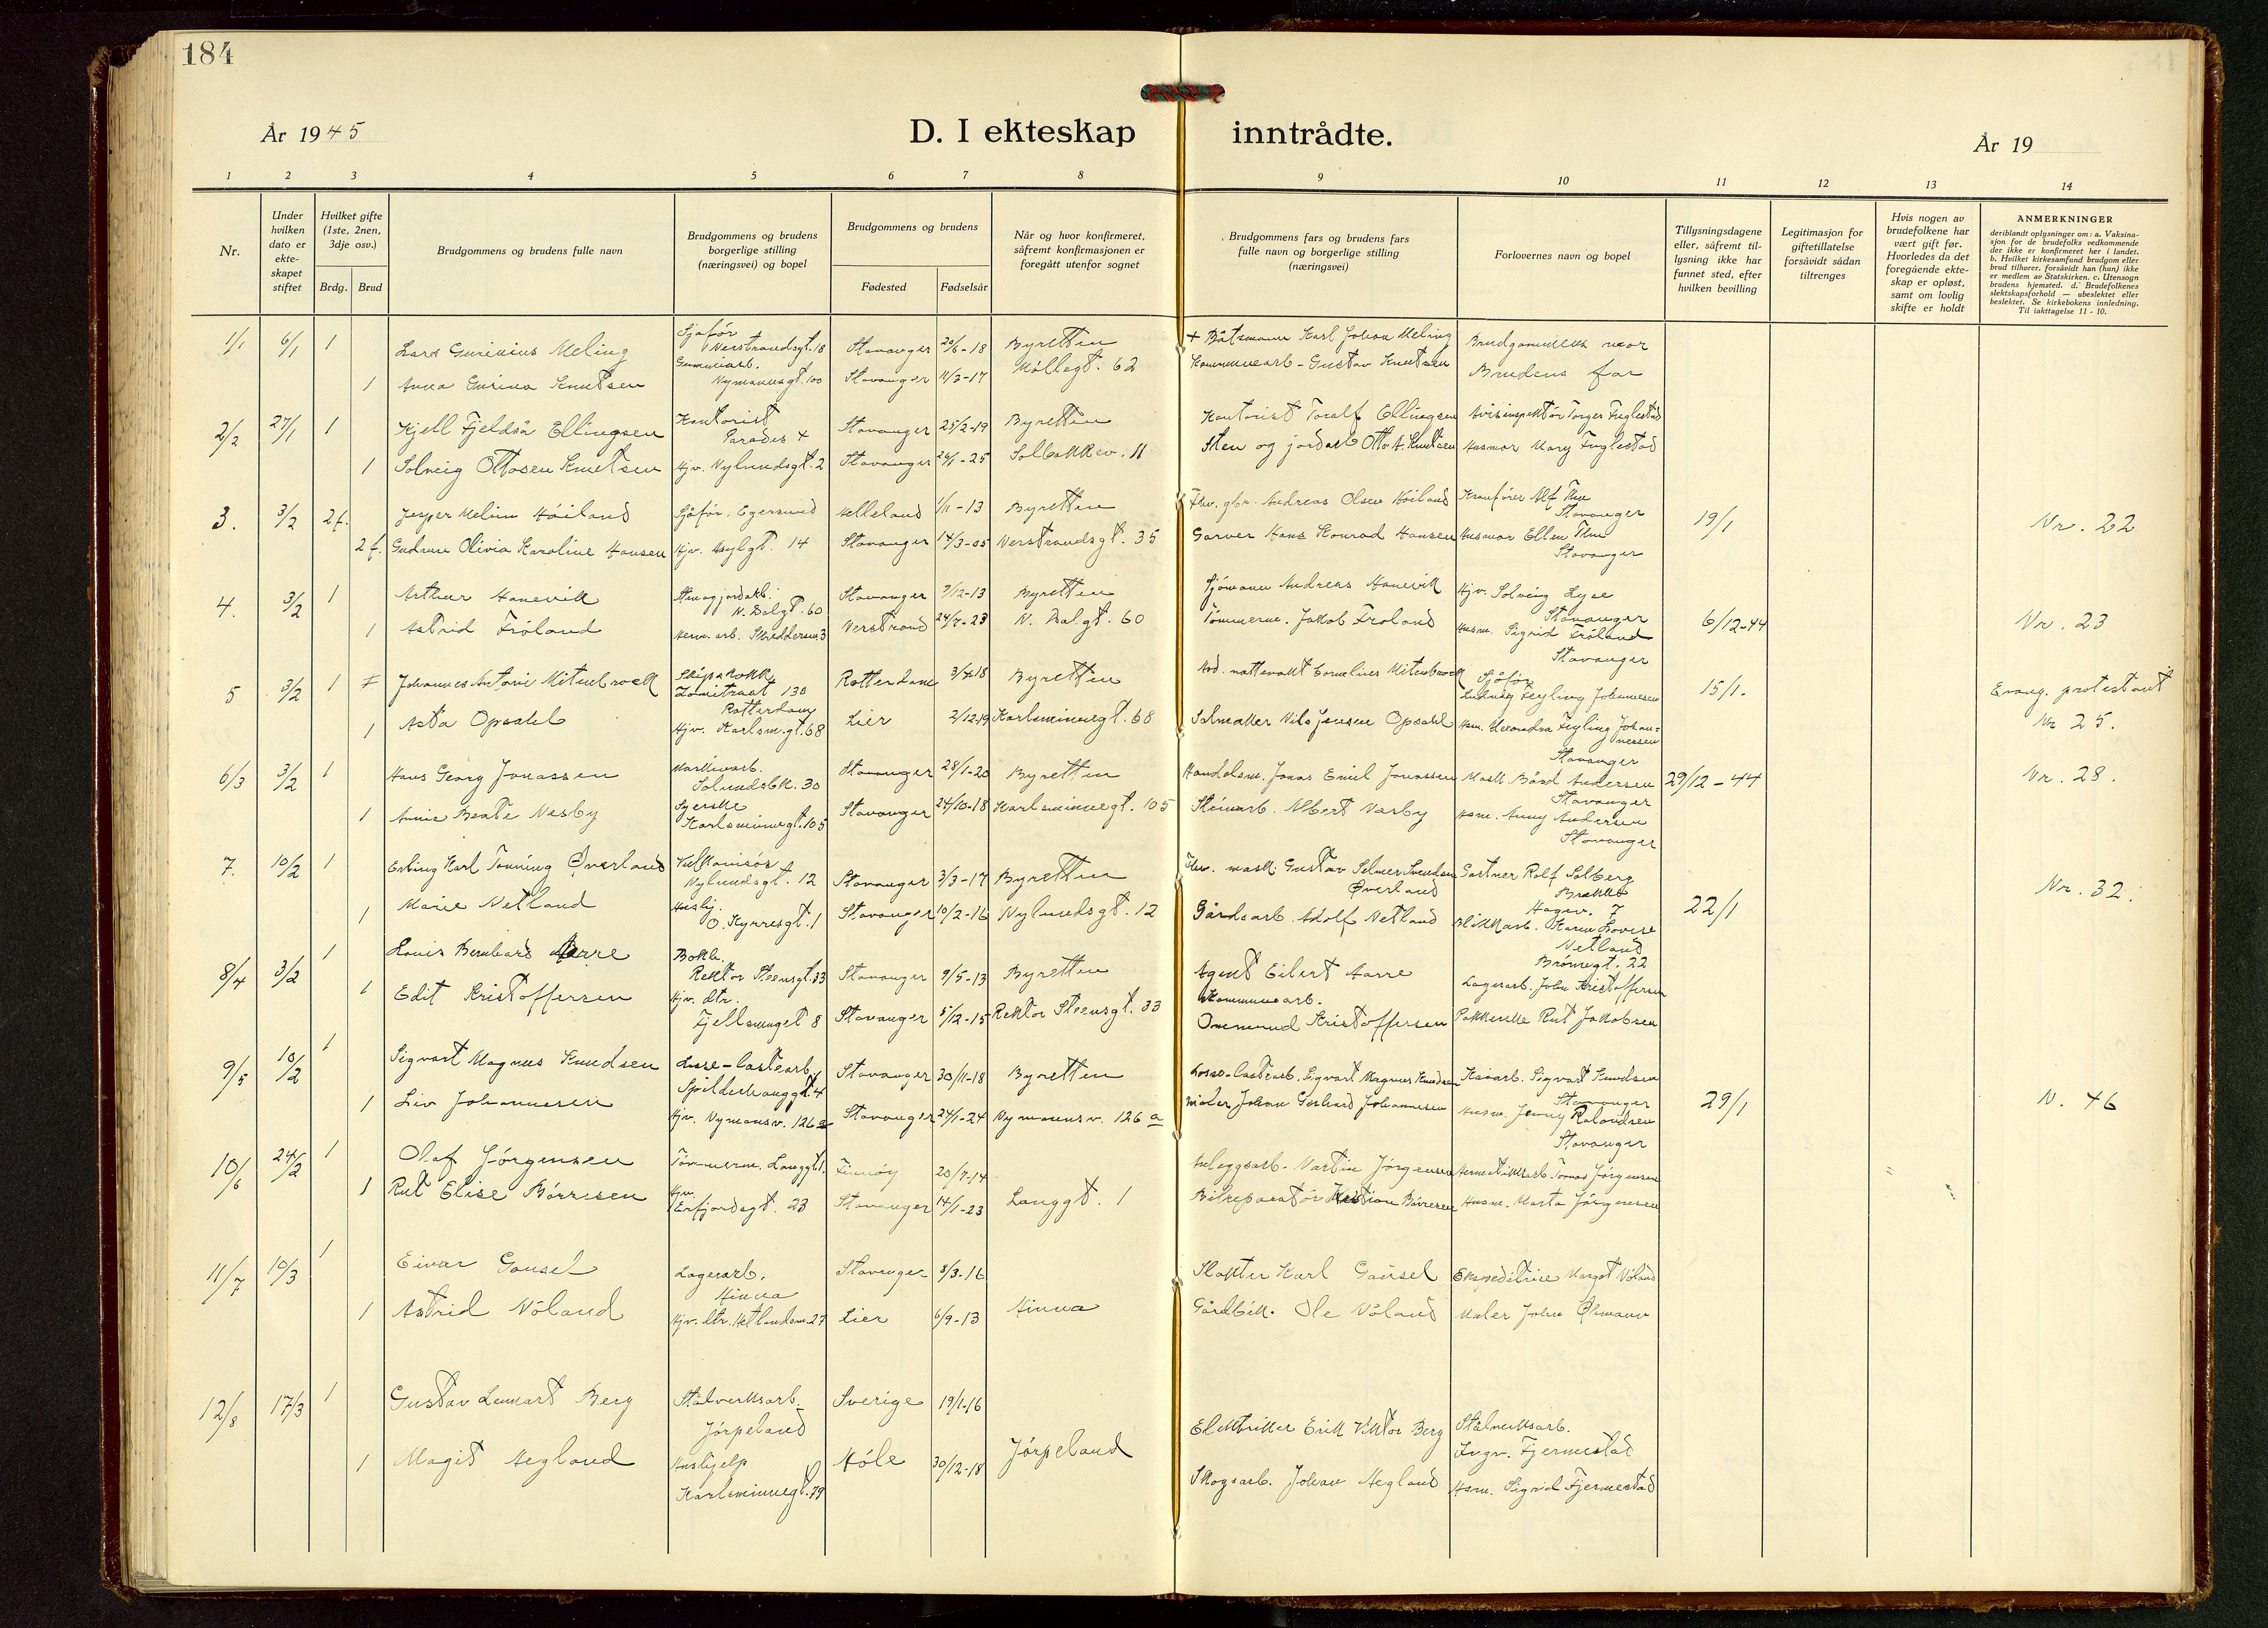 184
År 1945
D. I ekteskap inntrådte.
År 19
1 2 3 4 5 6 7 8 9 10 11 12 13 14
Nr.
Under hvilken dato er ekte-skapet stiftet
Hvilket gifte (1ste, 2nen, 3dje osv.)
Brdg. Brud
Brudgommens og brudens fulle navn
Brudgommens og brudens borgerlige stilling (næringsvei) og bopel
Brudgommens og brudens
Fødested Fødselsår
Når og hvor konfirmeret, såfremt konfirmasjonen er foregått utenfor sognet
Brudgommens fars og brudens fars fulle navn og borgerlige stilling (næringsvei)
Forlovernes navn og bopel
Tillysningsdagene eller, såfremt til-lysning ikke har funnet sted, efter hvilken bevilling
Legitimasjon for giftetillatelse forsåvidt sådan tiltrenges
Hvis nogen av brudefolkene har vært gift før. Hvorledes da det foregående ekte-skap er opløst, samt om lovlig skifte er holdt
ANMERKNINGER
deriblandt oplysninger om: a. Vaksina-sjon for de brudefolks vedkommende der ikke er konfirmeret her i landet. b. Hvilket kirkesamfund brudgom eller brud tilhører, forsåvidt han (hun) ikke er medlem av Statskirken. c. Utensogn brudens hjemsted. d. Brudefolkenes slektskapsforhold — ubeslektet eller beslektet. Se kirkebokens innledning. Til iakttagelse 11 - 10.
1/1 6/1 1 Lars Gurinius Meling Sjåfør Verstrandsgt. 18 Stavanger 20/6-18 Byretten + Båtsmann Karl Johan Meling Brudgommens mor
1 Anna Gurina Knutsen Gummiarb. Nymansgt. 100 Stavanger 11/3-17 Møllegt. 62 Kommunearb. Gustav Knutsen Brudens far
2/2 27/1 1 Kjell Fjeldså Ellingsen Kontorist Paradis + Stavanger 25/2-19 Byretten Kontorist Toralf Ellingsen Torger Fuglestad
1 Solveig Ottosen Knutsen Hjv. Nylundsgt. 2 Stavanger 24/1-25 Solbakkev. 11 Sten og jordarb. Otto A. Knutsen Husmor Mary Fuglestad
3. 3/2 2f. Jesper Melim Høiland Sjåfør. Egersund Helleland 1/11-13 Byretten Fhv. gbr. Andreas Olsen Høiland Kranfører Alf Thu Stavanger 19/1 Nr. 22
2f. Gudrun Olivia Karoline Hansen Hjv. Asylgt. 14 Stavanger 14/3-05 Verstrandsgt. 35 Garver Hans Konrad Hansen Husmor Ellen Thu Stavanger
4. 3/2 1 Arthur Hanevik Sten og jordarb. N. Dalgt. 60 Stavanger 9/12-13 Byretten Sjømann Andreas Hanevik Hjv. Solveig Lyse Stavanger 6/12-44 Nr. 23
1 Astrid Frøland Herm. arb. Skeddersm. 3 Verstrand 24/7-23 N. Dalgt. 60 Tømmerm. Jakob Frøland Husm. Sigrid Frøland Stavanger
5 3/2 1 Johannes Antoni Mitenbroek Skipskokk 130 Rotterdam Rotterdam 3/4-18 Byretten Cornelius Mitenbroek Sjåfør Ludvig Feyling Johannesen 15/1. Evang. protestant
1 Asta Opsahl Hjv. Karlsm.gt. 68 Lier 2/12-19 Karlsminnegt. 68 Salmaker Nils Jensen Opsahl Hsm. Alexandra Feyling Johannesen Stavanger Nr. 25.
6/3 3/2 1 Hans Georg Jonassen Solundsbk. 30 Stavanger 28/1-20 Byretten Handelsm. Jonas Emil Jonassen Mask. Bård Andersen Stavanger 29/12-44 Nr. 28.
1 Annie Beate Nesby Syerske Karlsminnegt. 105 Stavanger 24/10-18 Karlsminnegt. 105 Steinarb. Albert Nesby Hsm. Anny Andersen Stavanger
7. 10/2 1 Erling Karl Tonning Øverland Vulkanisør Nylundsgt. 12 Stavanger 3/3-17 Byretten Fhv. mask. Gustav Selmer Svendsen Øverland Gartner Rolf Solberg Brekke Hagev. 7 22/1 Nr. 32.
1 Marie Netland Hushj. O. Kyrresgt. 1 Stavanger 10/2-16 Nylundsgt. 12 Gårdsarb. Adolf Netland Blikkarb. Karen Lovise Netland Brønegt. 22
8/4 3/2 1 Louis Bernhard Aarre Bokb. Rektor Steensgt. 33 Stavanger 9/5-13 Byretten Agent Eilert Aarre Lagerarb. John Kristoffersen
1 Edit Kristoffersen Hjv. dtr. Fjellsmuget 8 Stavanger 5/12-15 Rektor Steensgt. 33 Kommunearb. Ommund Kristoffersen Pakkerske Rut Jakobsen
9/5 10/2 1 Sigvart Magnus Knudsen Losse-lastearb. Spilderhauggt. 4 Stavanger 30/11-18 Byretten Losse-lastearb. Sigvart Magnus Knudsen Kaiarb. Sigvart Knudsen Stavanger 29/1 N. 46
1 Liv Johannesen Hjv. Nymansv. 126a Stavanger 24/1-24 Nymansv. 126a Maler Johan Gerhard Johannesen Husm. Jenny Rolandsen Stavanger
10/6 24/2 1 Olaf Jørgensen Tømmerm. Langgt. 1. Finnøy 20/7-14 Anleggsarb. Martin Jørgensen Hermetikkarb. Tomas Jørgensen
1 Rut Elise Børresen Hjv. Erfjordsgt. 23 Stavanger 14/1-23 Langgt. 1 Bilreparatør Kristian Børresen Husm. Marta Jørgensen
11/7 10/3 1 Einar Gausel Lagerarb. Hinna Stavanger 8/3-16 Slakter Karl Gausel Ekspeditrise Margot Nøland
1 Astrid Nøland Hjv. dtr. Ketlandsm. 27 Lier 6/9-13 Hinna Gårdbr. Ole Nøland Maler John Øhmann
12/8 17/3 1 Gustav Lennart Berg Stålverksarb. Jørpeland Sverige 19/1-16 Elektriker Erik Viktor Berg Stålverksarb. Ingv. Fjermestad
1 Magit Hegland Hushjelp Karlsminnegt. 79 Høle 30/12-18 Jørpeland Skogsarb. Johan Hegland Hsm. Sigrid Fjermestad